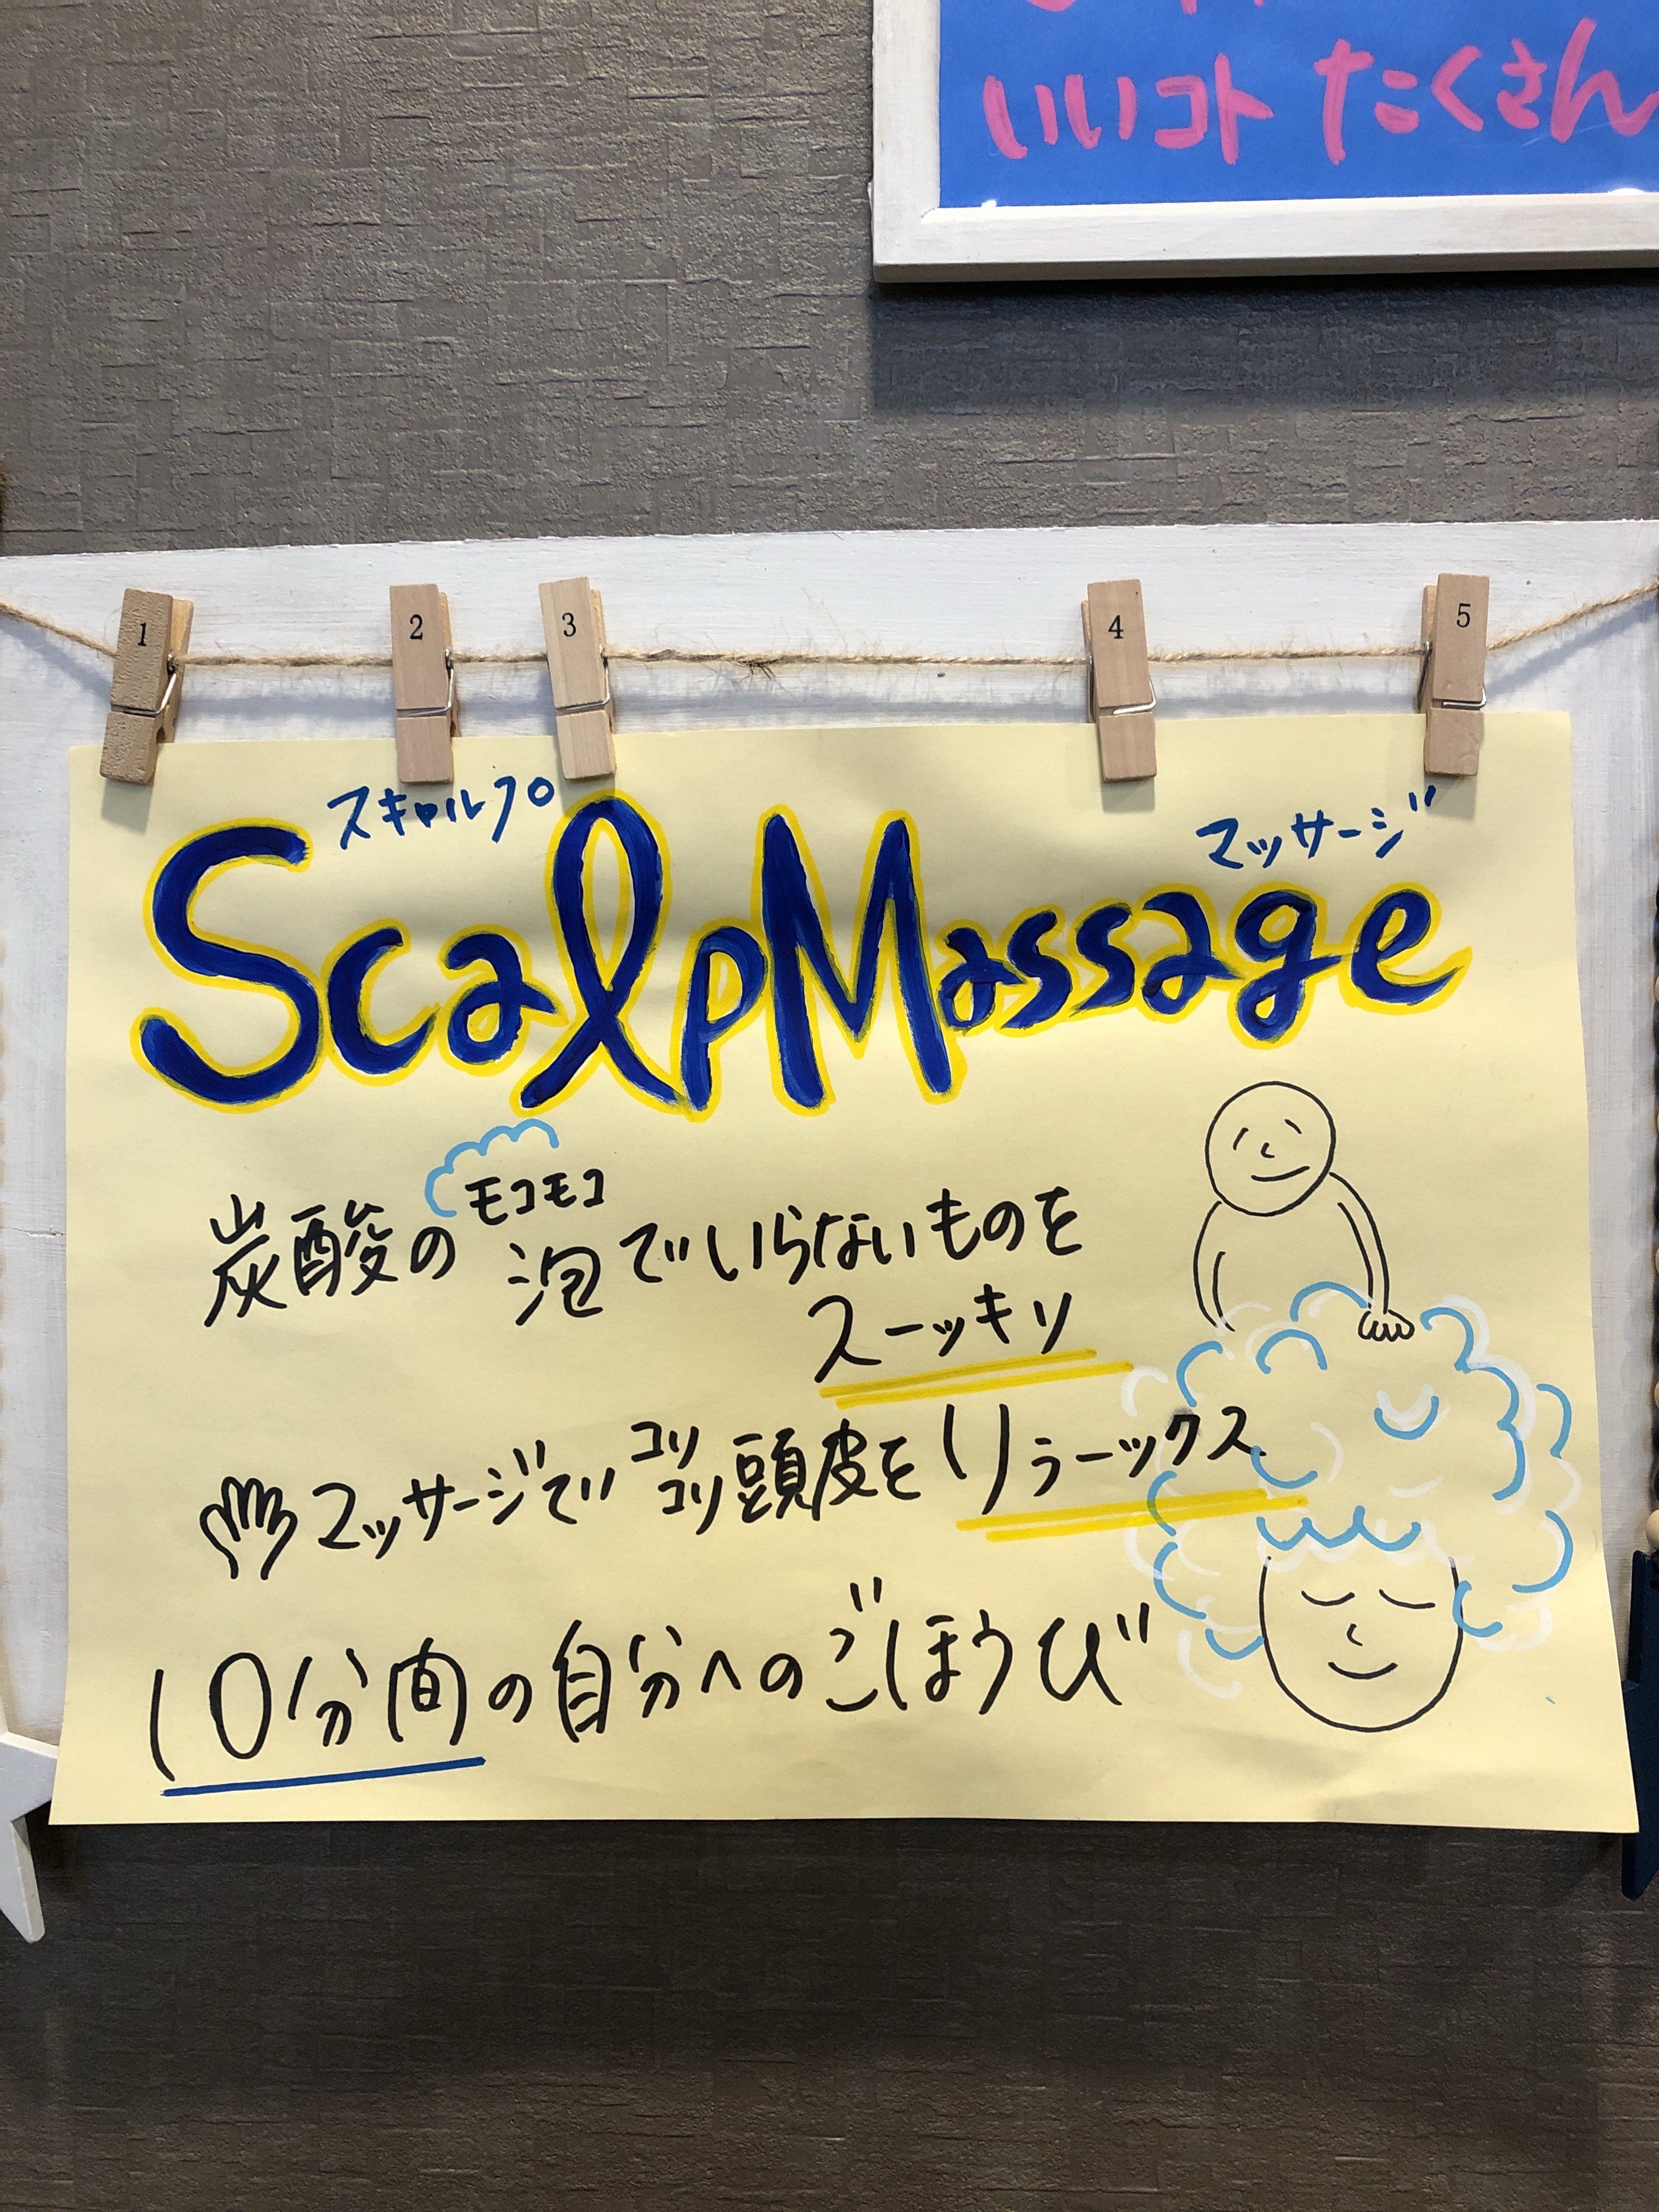 いいコト たくさん
1 2 3 4 5
スキャルプ マッサージ
Scalp Massage
モコモコ
炭酸の泡でいらないものを
スーッキリ
マッサージでコリコリ頭皮をリラーックス
10分間の自分へのごほうび